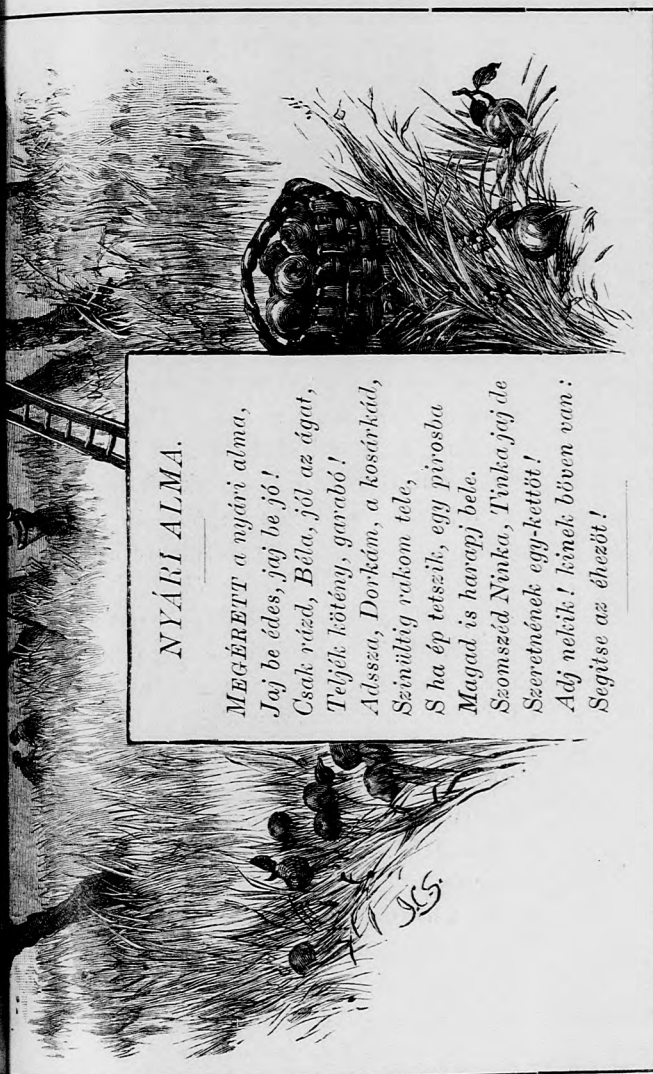 NYÁRI ALMA.
MEGÉRETT a nyári alma,
Jaj be édes, jaj be jó!
Csak rázd, Béla, jól az ágat,
Teljék kötény, garabó!
Adssza, Dorkám, a kosárkád,
Szinültig rakom tele,
S ha ép tetszik, egy pirosba
Magad is harapj bele.
Szomszéd Ninka, Tinka jaj de
Szeretnének egy-kettőt!
Adj nekik! kinek bőven van:
Segitse az éhezőt!
J.S.